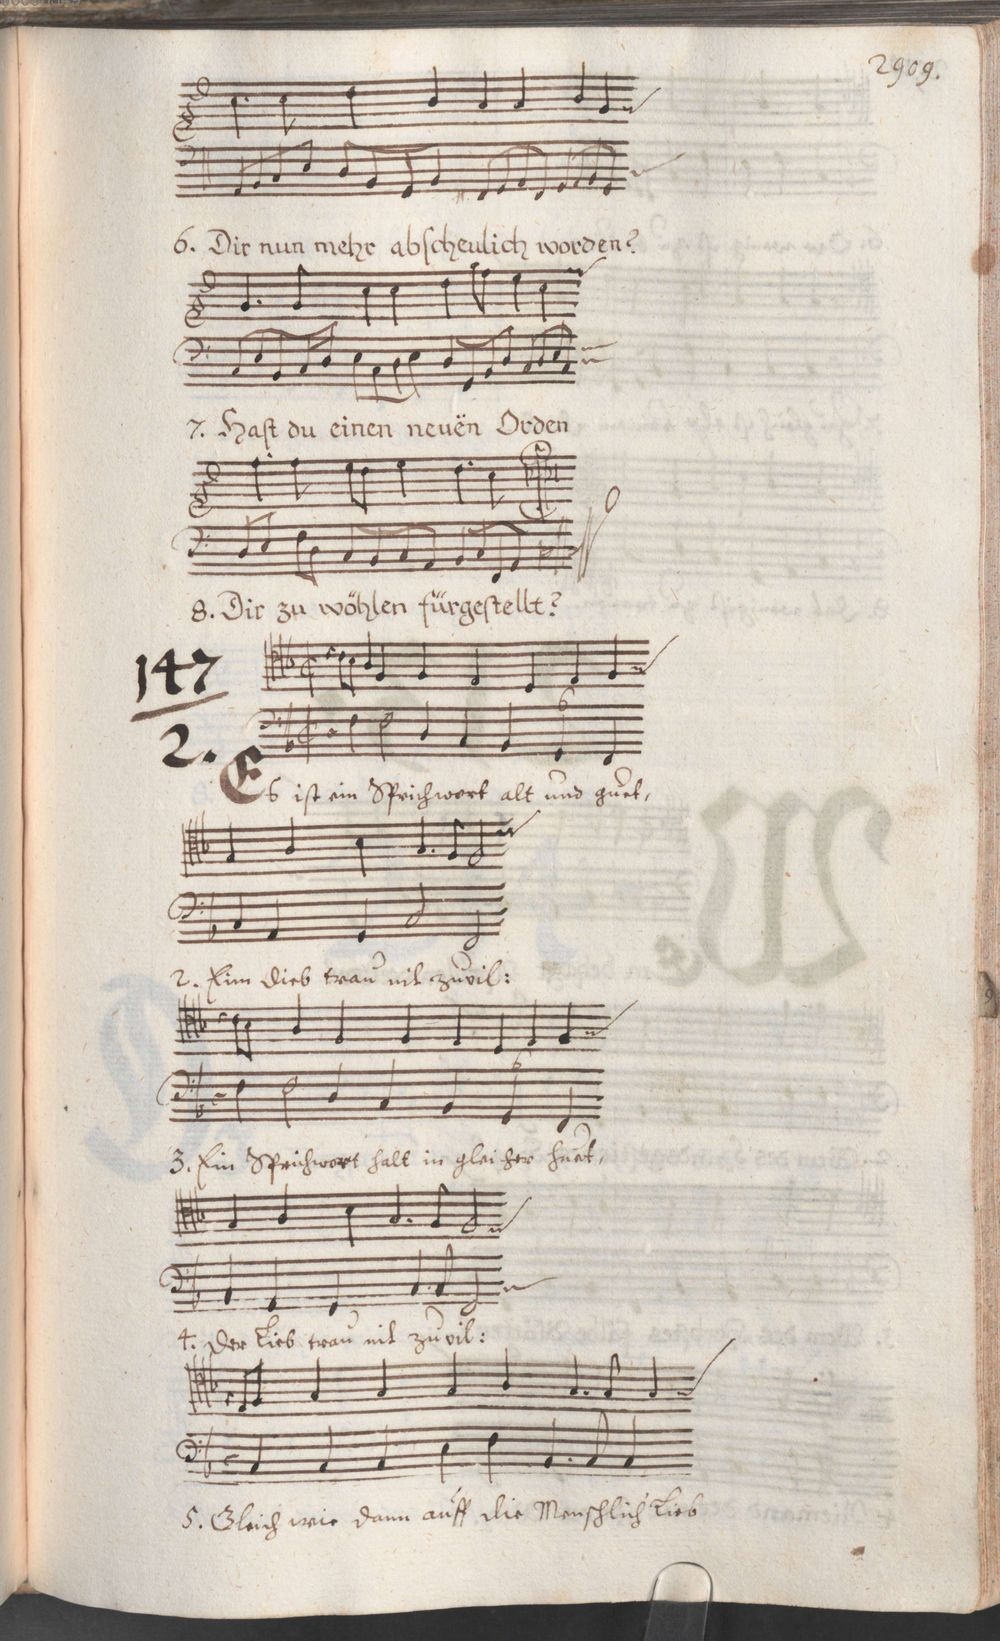 2909.
6. Dir nun mehr abscheulich worden?
7. Hast du einen neuën Orden
8. Dir zu wöhlen fürgestellt?
147
2.
Es ist ein Sprichwort alt und guet,
2. Eim Dieb trau nit zuvil:
3. Ein Sprichwort halt in gleicher huet,
4. Der Lieb trau nit zuvil:
5. Gleich wie dann auff die Menschlich Lieb